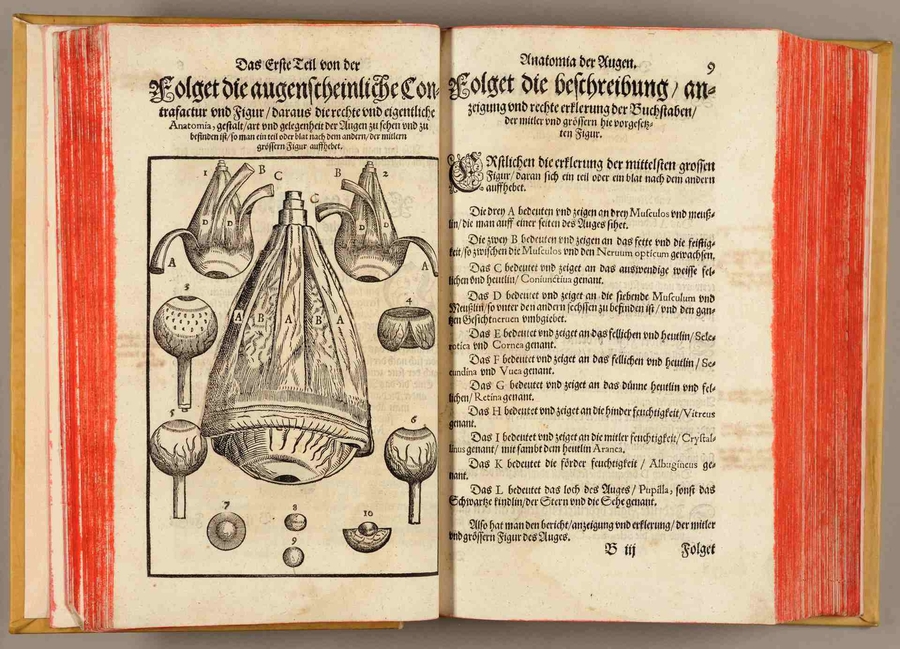 Das Erste Teil von der
Folget die augenscheinliche Con-
trafactur vnd Figur/daraus die rechte vnd eigentliche
Anatomia, gestalt/art vnd gelegenheit der Augen zu sehen vnd zu
befinden ist/so man ein teil oder blat nach dem andern/der mitlern
grössern Figur auffhebet.
1 B C
C
B 2
D D
D D
A
A
A B A B A
3
4
5
6
7
8
9
10
Anatomia der Augen. 9
Folget die beschreibung/an-
zeigung vnd rechte erklerung der Buchstaben/
der mitler vnd grössern hie vorgesetz-
ten Figur.
ERstlichen die erklerung der mittelsten grossen
Figur/daran sich ein teil oder ein blat nach dem andern
auffhebet.
Die drey A bedeuten vnd zeigen an drey Musculos vnd meuß-
lin/die man auff einer seiten des Auges sihet.
Die zwey B bedeuten vnd zeigen an das fette vnd die feistig-
keit/so zwischen die Musculos vnd den Neruum opticum gewachsen.
Das C bedeutet vnd zeiget an das auswendige weisse fel-
lichen vnd heutlin/Coniunctiua genant.
Das D bedeutet vnd zeiget an die siebende Musculum vnd
Meußlin/so vnter den andern sechssen zu befinden ist/vnd den gan-
tzen Gesichtneruen vmbgiebet.
Das E bedeutet vnd zeiget an das fellichen vnd heutlin/Scle-
rotica vnd Cornea genant.
Das F bedeutet vnd zeiget an das fellichen vnd heutlin/Se-
cundina vnd Vuea genant.
Das G bedeutet vnd zeiget an das dünne heutlin vnd fel-
lichen/Retina genant.
Das H bedeutet vnd zeiget an die hinder feuchtigkeit/Vitreus
genant.
Das I bedeutet vnd zeiget an die mitler feuchtigkeit/Crystal-
linus genant/mit sambt dem heutlin Aranea.
Das K bedeutet die förder feuchtigkeit/Albugineus ge-
nant.
Das L bedeutet das loch des Auges/Pupilla, sonst das
Schwartze kindlin/der Stern vnd die Sehe genant.
Also hat man den bericht/anzeigung vnd erklerung/der mitler
vnd grössern Figur des Auges.
B iij Folget